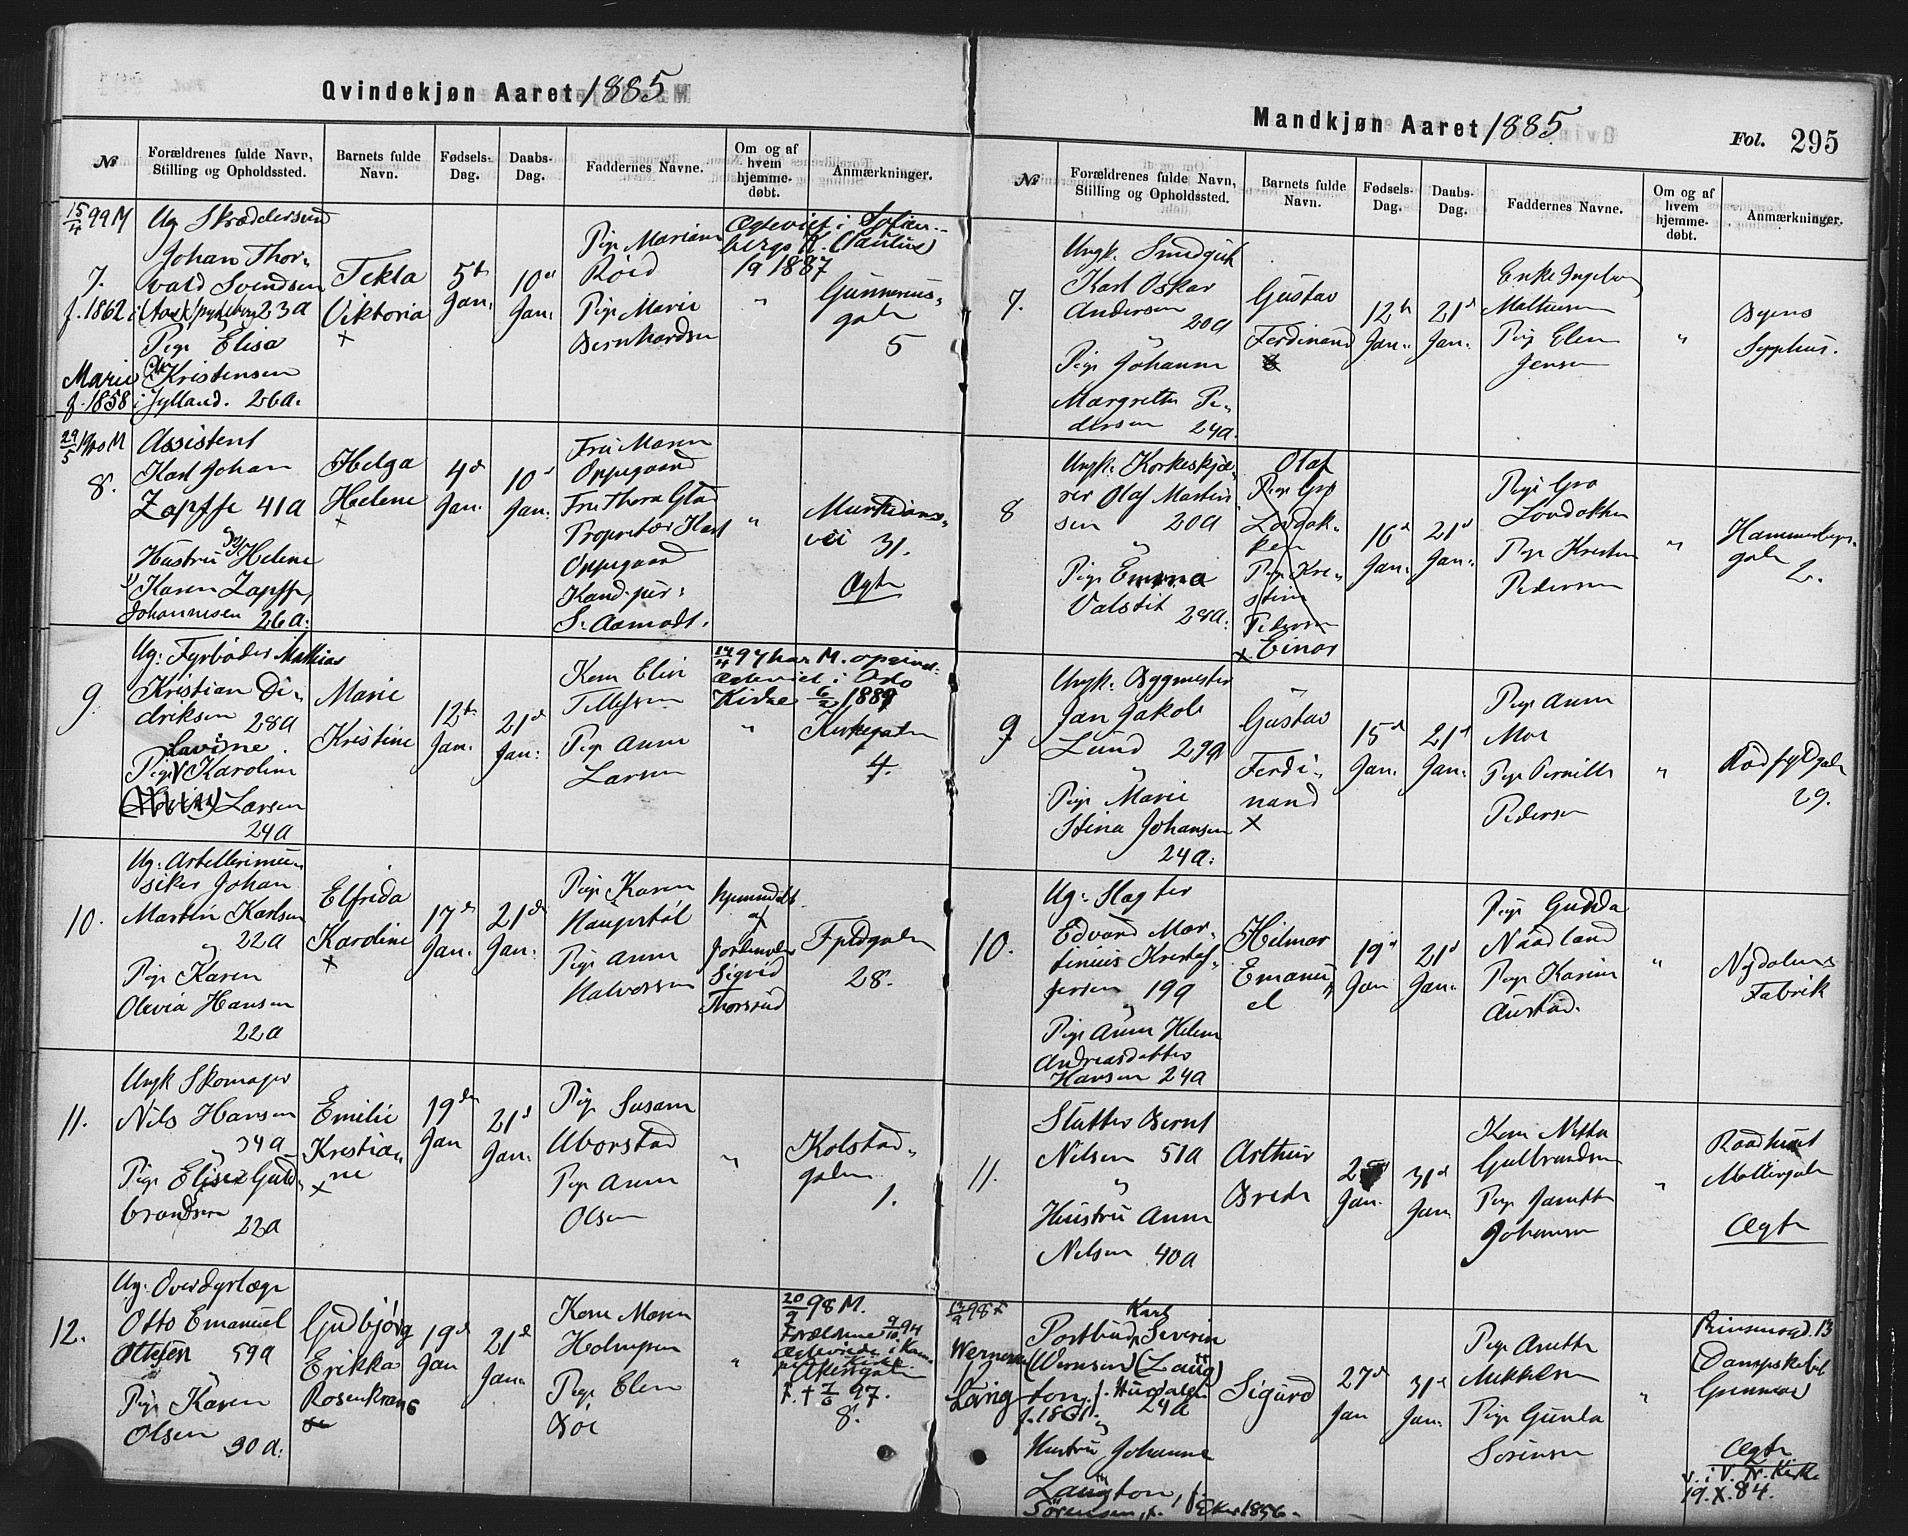 Qvindekjøn Aaret 1885
№
Forældrenes fulde Navn, Stilling og Opholdssted.
Barnets fulde Navn.
Fødsels-Dag.
Daabs-Dag.
Faddernes Navne.
Om og af hvem hjemme-døbt.
Anmærkninger.
15/4 99 M
7.
f. 1862 i
Ug Skræddersvend
Johan Thor-
vald Svendsen
23 a
Pige Elisa
Marie Kristensen
f. 1858 i Jylland. 26 a.
Tekla
Viktoria
×
5te
Jan.
10de
Jan.
Pige Mariane
Roed
Pige Marie
Bernhardsen
Ægteviet i Sofien-
bergs K. (Paulus)
1887
"
Gunnerus-
gaden
5
8.
Assistent
Karl Johan
Zapffe 41 a
Hustru Helene
Karen Zapffe,
Johannesen 26 a.
Helga
Helene
×
4de
Jan.
10de
Jan.
Fru Maren
Oppegaard
Fru Thora Glad
Proprietær Karl
Oppegaard
Kand. jur.
S. Aamodt.
"
Munkedams-
vei 31.
Ægte
9.
Ug. Fyrbøder Mathias
Kristian Di-
driksen 28 a
Lavine
Pige Karoline
Larsen
24 a
Marie
Kristine
12te
Jan.
21de
Jan.
Kone Elin
Tellefsen
Pige Anne
Larsen
Ægteviet i Oslo
Kirke 6/2 1889
"
Kirkegaden
4.
10.
Ug. Artillerimu-
siker Johan
Martin Karlsen
22 a
Pige Karen
Olevia Hansen
22 a
Elfrida
Karoline
×
17de
Jan.
21de
Jan.
Pige Karen
Haugestøl
Pige Anne
Halvorsen
hjemmedøbt
af
Jordemoder
Sigrid
Thorsrud
Fjeldgaden
28.
11.
Ungk Skomager
Nils Hansen
34 a
Pige Elise Guld-
brandsen
22 a
Emilie
Kristia-
ne
×
19de
Jan
21de
Jan.
Pige Susanne
Aborstad
Pige Anne
Olsen
"
Kolstad-
gaden
1.
12.
Ug. Overdyrlæge
Otto Emanuel
Ottesen 59 a
Pige Karen
Olsen 30 a.
Gudbjørg
Erikka
Rosenkrans
19de
Jan
21de
Jan.
Kone Maren
Holmsen
Pige Elen
Bøe
"
20/9 98 M.
Forældrene 9/10 94
Ægteviede i
Kirke.
Akersgaden
F. † 97.
8.
Mandkjøn Aaret 1885.
Fol. 295
№
Forældrenes fulde Navn, Stilling og Opholdssted.
Barnets fulde Navn.
Fødsels-Dag.
Daabs-Dag.
Faddernes Navne.
Om og af hvem hjemme-døbt.
Anmærkninger.
7.
Ungk. Smedgut
Karl Oskar
Andersen
20 a
Pige Johanne
Margrethe Pe-
dersen 24 a.
Gustav
Ferdinand
12te
Jan.
21de
Jan.
Enke Ingeborg
Mathiesen
Pige Elen
Jensen
"
Byens
Sygehus.
8
Ungk. Korkeskjæ-
rer Olaf Martin-
sen 20 a
"
Pige Emma
Valstit
28 a.
Olaf
Pige Gro
Lovdok-
ken
Pige Kri-
stine
Pedersen
× Einar
16de
Jan.
21de
Jan.
Pige Gro
Lovdokken
Pige Kristine
Pedersen
"
Hammersborg-
gaden
2.
9
Ungk. Bygmester
Jan Jakob
Lund 29 a
"
Pige Marie
Stina Johansen
24 a.
Gustav
Ferdi-
nand
×
15de
Jan.
21de
Jan.
Pige Anne
Moe
Pige Pernille
Pedersen
"
Rødfyldgaden
29.
10.
Ug. Slagter
Edvard Mar-
tinius Kristof-
fersen 19 a
"
Pige Anne Helene
Andreasdatter
Hansen 24 a
Hilmar
Emanu-
el
19de
Jan
21de
Jan.
Pige Gudda
Naadland
Pige Karine
Austad.
"
Nydalens
Fabrik
11.
Slutter Bernt
Nilsen 51 a
"
Hustru Anne
Nilsen 40 a
Arthur
Brede
Jan.
31de
Jan.
Kone Mette
Gulbrandsen
Pige Janette
Johansen
"
Raadhuset
Møllergaden
Ægte
12
Werner
Lang
Postbud Karl Severin
(Wernsen) (Lang)
ton, f. Hurdalen
f. 1861. 24 a
Hustru Johanne
Langton,
Sørensen, f. i Eker 1856.
Sigurd
27de
Jan
31de
Jan.
Pige Anette
Mikkelsen
Pige Gunda
Sørensen
"
Prinsensgd. 13
(Dampskibet
Gunnar)
Ægte
v. i V. Fr. Kirke
19.X.84.